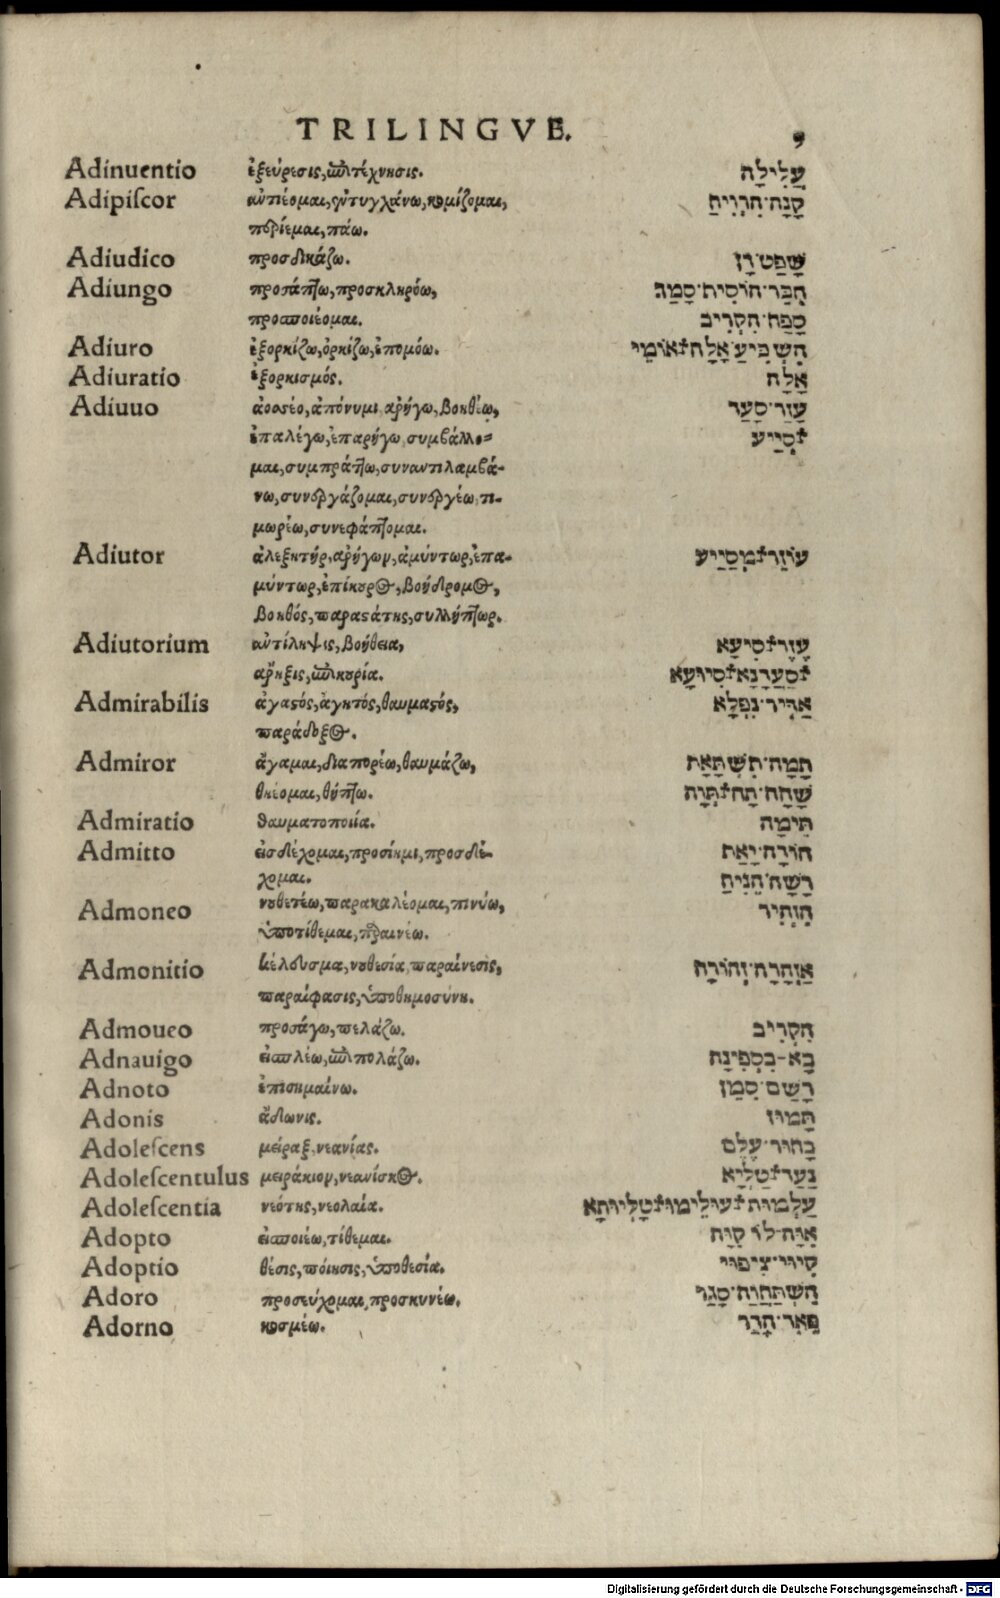 TRILINGVE. 9
Adinuentio ἐξεύρεσις, ἐπιτέχνησις. עֲלִילָה
Adipiſcor ἀντιέομαι, ἐντυγχάνω, κομίζομαι, קָנָה·הִרְוִיחַ
ποριέμαι, πάω.
Adiudico προσδικάζω. שָׁפַט·דָן
Adiungo προστάπτω, προσκληρόω, חִבַּר·הוֹסִית·סָמַךְ
προσποιέομαι. סָפַח·הִקְרִיב
Adiuro ἐξορκίζω, ὁρκίζω, ἐπομόω. הִשְׁבִּיעַ·אָלָה·אוֹמֵי
Adiuratio ἐξορκισμός. אָלָה
Adiuuo ἀοσέο, ἀπόνυμι, ἀρήγω, βοηθέω, עָזַר·סָעַר
ἐπαλέγω, ἐπαρήγω, συμβάλλο- סִיֵיעַ
μαι, συμπράττω, συναντιλαμβά-
νω, συνεργάζομαι, συνεργέω, τι-
μωρέω, συνεφάπτομαι.
Adiutor ἀλεξητήρ, ἀρήγων, ἀμύντωρ, ἐπα- עוֹזֵר·מְסַיֵיעַ
μύντωρ, ἐπίκουρος, βοήδρομος,
βοηθός, παραστάτης, συλλήπτωρ.
Adiutorium ἀντίληψις, βοήθεια, עֵזֶר·סִיעָא
ἄρηξις, ἐπικουρία. סַעֲרָנָא·סִיוּעָא
Admirabilis ἀγαστός, ἀγητός, θαυμαστός, אַדִיר·נִפְלָא
παράδοξος.
Admiror ἄγαμαι, διαπορέω, θαυμάζω, תָּמַהּ·הִשְׁתָּאָת
θηέομαι, θήπτω. שָׁהָה·תָּהּ·תְּוָה
Admiratio θαυματοποιία. תֵּימָה
Admitto εἰσδέχομαι, προσίημι, προσδέ- הוֹרָה·יָאַת
χομαι. רָשָׁה·הֵנִיחַ
Admoneo νουθετέω, παρακαλέομαι, πινύω, הִזְהִיר
ὑποτίθεμαι, παραινέω.
Admonitio κέλευσμα, νουθεσία, παραίνεσις, אַזְהָרָה·זְהוֹרָה
παραίφασις, ὑποθημοσύνη.
Admoueo προσάγω, πελάζω. הִקְרִיב
Adnauigo εἰσπλέω, ἐπιπολάζω. בָּא-בִּסְפִינָה
Adnoto ἐπισημαίνω. רָשַׁם·סִמַּן
Adonis ἄδωνις. תַּמּוּז
Adoleſcens μείραξ, νεανίας. בָּחוּר·עֶלֶם
Adoleſcentulus μειράκιον, νεανίσκος. נַעַר·טַלְיָא
Adoleſcentia νεότης, νεολαία. עַלְמוּת·עוּלֵימוּ·טַלְיוּתָא
Adopto εἰσποιέω, τίθεμαι. אִוָּה·לוֹ קִוָּה
Adoptio θέσις, ποίησις, ὑποθεσία. קִיווּי·צִיפוּי
Adoro προσεύχομαι, προσκυνέω. הִשְׁתַּחֲוָה·סָגַד
Adorno κοσμέω. פֵּאֵר·הָדַר
Digitalisierung gefördert durch die Deutsche Forschungsgemeinschaft - DFG